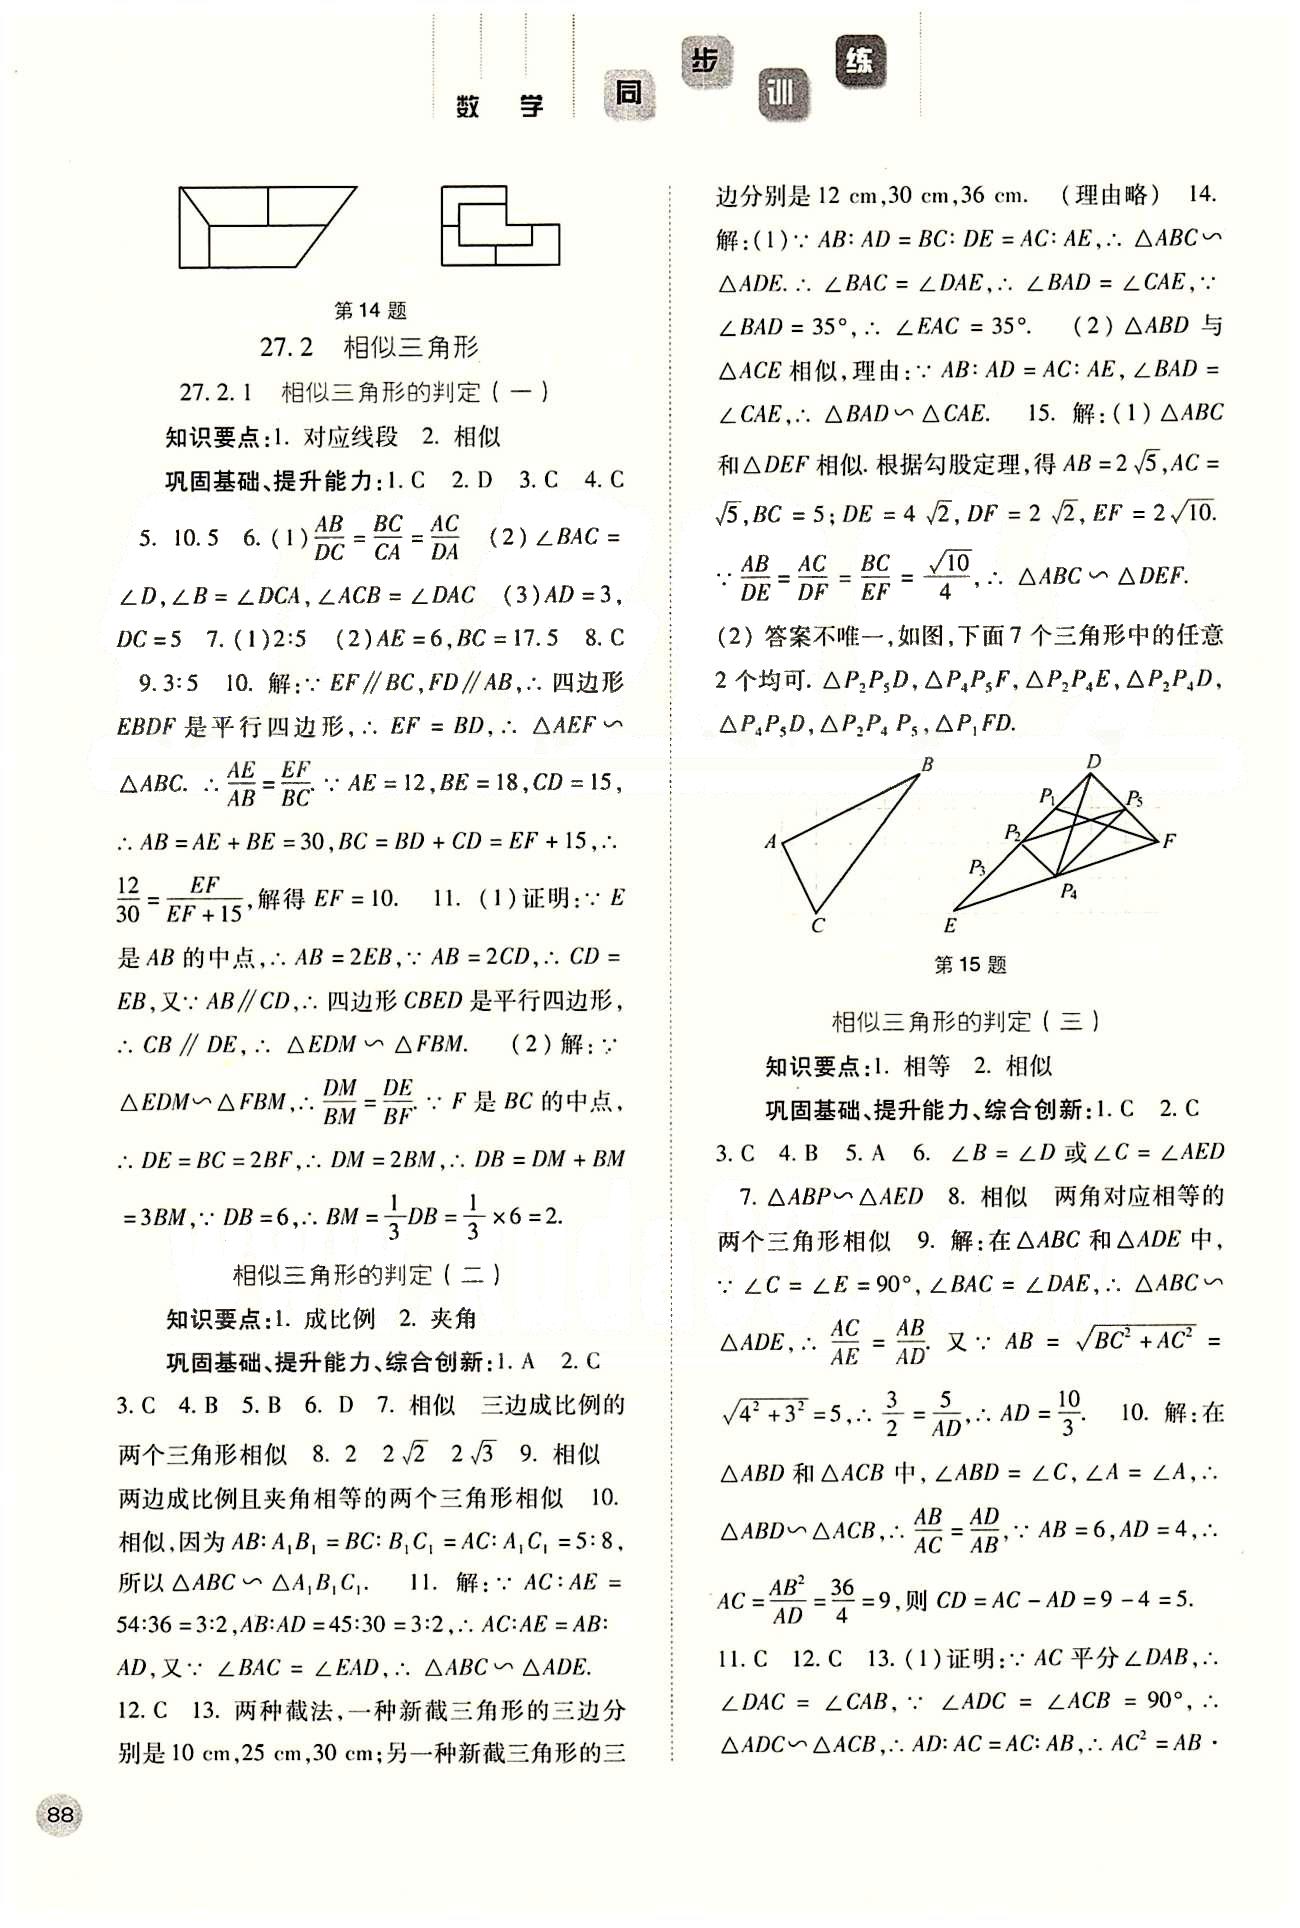 数 学 同 步 训 练
第14题
27.2 相似三角形
27.2.1 相似三角形的判定(一)
知识要点:1. 对应线段 2. 相似
巩固基础、提升能力:1. C 2. D 3. C 4. C
5. 10.5 6. (1) AB/DC = BC/CA = AC/DA (2) ∠BAC =
∠D, ∠B = ∠DCA, ∠ACB = ∠DAC (3) AD = 3,
DC = 5 7. (1) 2∶5 (2) AE = 6, BC = 17.5 8. C
9. 3∶5 10. 解:∵ EF∥BC, FD∥AB, ∴ 四边形
EBDF 是平行四边形, ∴ EF = BD, ∴ △AEF∽
△ABC. ∴ AE/AB = EF/BC. ∵ AE = 12, BE = 18, CD = 15,
∴ AB = AE + BE = 30, BC = BD + CD = EF + 15, ∴
12/30 = EF/(EF + 15), 解得 EF = 10. 11. (1) 证明:∵ E
是 AB 的中点, ∴ AB = 2EB, ∵ AB = 2CD, ∴ CD =
EB, 又∵ AB∥CD, ∴ 四边形 CBED 是平行四边形,
∴ CB∥DE, ∴ △EDM∽△FBM. (2) 解:∵
△EDM∽△FBM, ∴ DM/BM = DE/BF. ∵ F 是 BC 的中点,
∴ DE = BC = 2BF, ∴ DM = 2BM, ∴ DB = DM + BM
= 3BM, ∵ DB = 6, ∴ BM = 1/3 DB = 1/3 × 6 = 2.
相似三角形的判定(二)
知识要点:1. 成比例 2. 夹角
巩固基础、提升能力、综合创新:1. A 2. C
3. C 4. B 5. B 6. D 7. 相似 三边成比例的
两个三角形相似 8. 2 2√2 2√3 9. 相似
两边成比例且夹角相等的两个三角形相似 10.
相似, 因为 AB∶A₁B₁ = BC∶B₁C₁ = AC∶A₁C₁ = 5∶8,
所以 △ABC∽△A₁B₁C₁. 11. 解:∵ AC∶AE =
54∶36 = 3∶2, AB∶AD = 45∶30 = 3∶2, ∴ AC∶AE = AB∶
AD, 又∵ ∠BAC = ∠EAD, ∴ △ABC∽△ADE.
12. C 13. 两种截法, 一种新截三角形的三边分
别是 10 cm, 25 cm, 30 cm; 另一种新截三角形的三
88
边分别是 12 cm, 30 cm, 36 cm. (理由略) 14.
解:(1) ∵ AB∶AD = BC∶DE = AC∶AE, ∴ △ABC∽
△ADE. ∴ ∠BAC = ∠DAE, ∴ ∠BAD = ∠CAE, ∵
∠BAD = 35°, ∴ ∠EAC = 35°. (2) △ABD 与
△ACE 相似, 理由:∵ AB∶AD = AC∶AE, ∠BAD =
∠CAE, ∴ △BAD∽△CAE. 15. 解:(1) △ABC
和△DEF 相似. 根据勾股定理, 得 AB = 2√5, AC =
√5, BC = 5; DE = 4√2, DF = 2√2, EF = 2√10.
∵ AB/DE = AC/DF = BC/EF = √10/4, ∴ △ABC∽△DEF.
(2) 答案不唯一, 如图, 下面 7 个三角形中的任意
2 个均可. △P₂P₅D, △P₄P₅F, △P₂P₄E, △P₂P₄D,
△P₄P₅D, △P₂P₄P₅, △P₁FD.
B D
P₁ P₅
A P₂ F
P₃ P₄
C E
第15题
相似三角形的判定(三)
知识要点:1. 相等 2. 相似
巩固基础、提升能力、综合创新:1. C 2. C
3. C 4. B 5. A 6. ∠B = ∠D 或∠C = ∠AED
7. △ABP∽△AED 8. 相似 两角对应相等的
两个三角形相似 9. 解:在△ABC 和△ADE 中,
∵ ∠C = ∠E = 90°, ∠BAC = ∠DAE, ∴ △ABC∽
△ADE, ∴ AC/AE = AB/AD. 又∵ AB = √(BC² + AC²) =
√(4² + 3²) = 5, ∴ 3/2 = 5/AD, ∴ AD = 10/3. 10. 解:在
△ABD 和△ACB 中, ∠ABD = ∠C, ∠A = ∠A, ∴
△ABD∽△ACB, ∴ AB/AC = AD/AB, ∵ AB = 6, AD = 4, ∴
AC = AB²/AD = 36/4 = 9, 则 CD = AC − AD = 9 − 4 = 5.
11. C 12. C 13. (1) 证明:∵ AC 平分∠DAB, ∴
∠DAC = ∠CAB, ∵ ∠ADC = ∠ACB = 90°, ∴
△ADC∽△ACB, ∴ AD∶AC = AC∶AB, ∴ AC² = AB ·